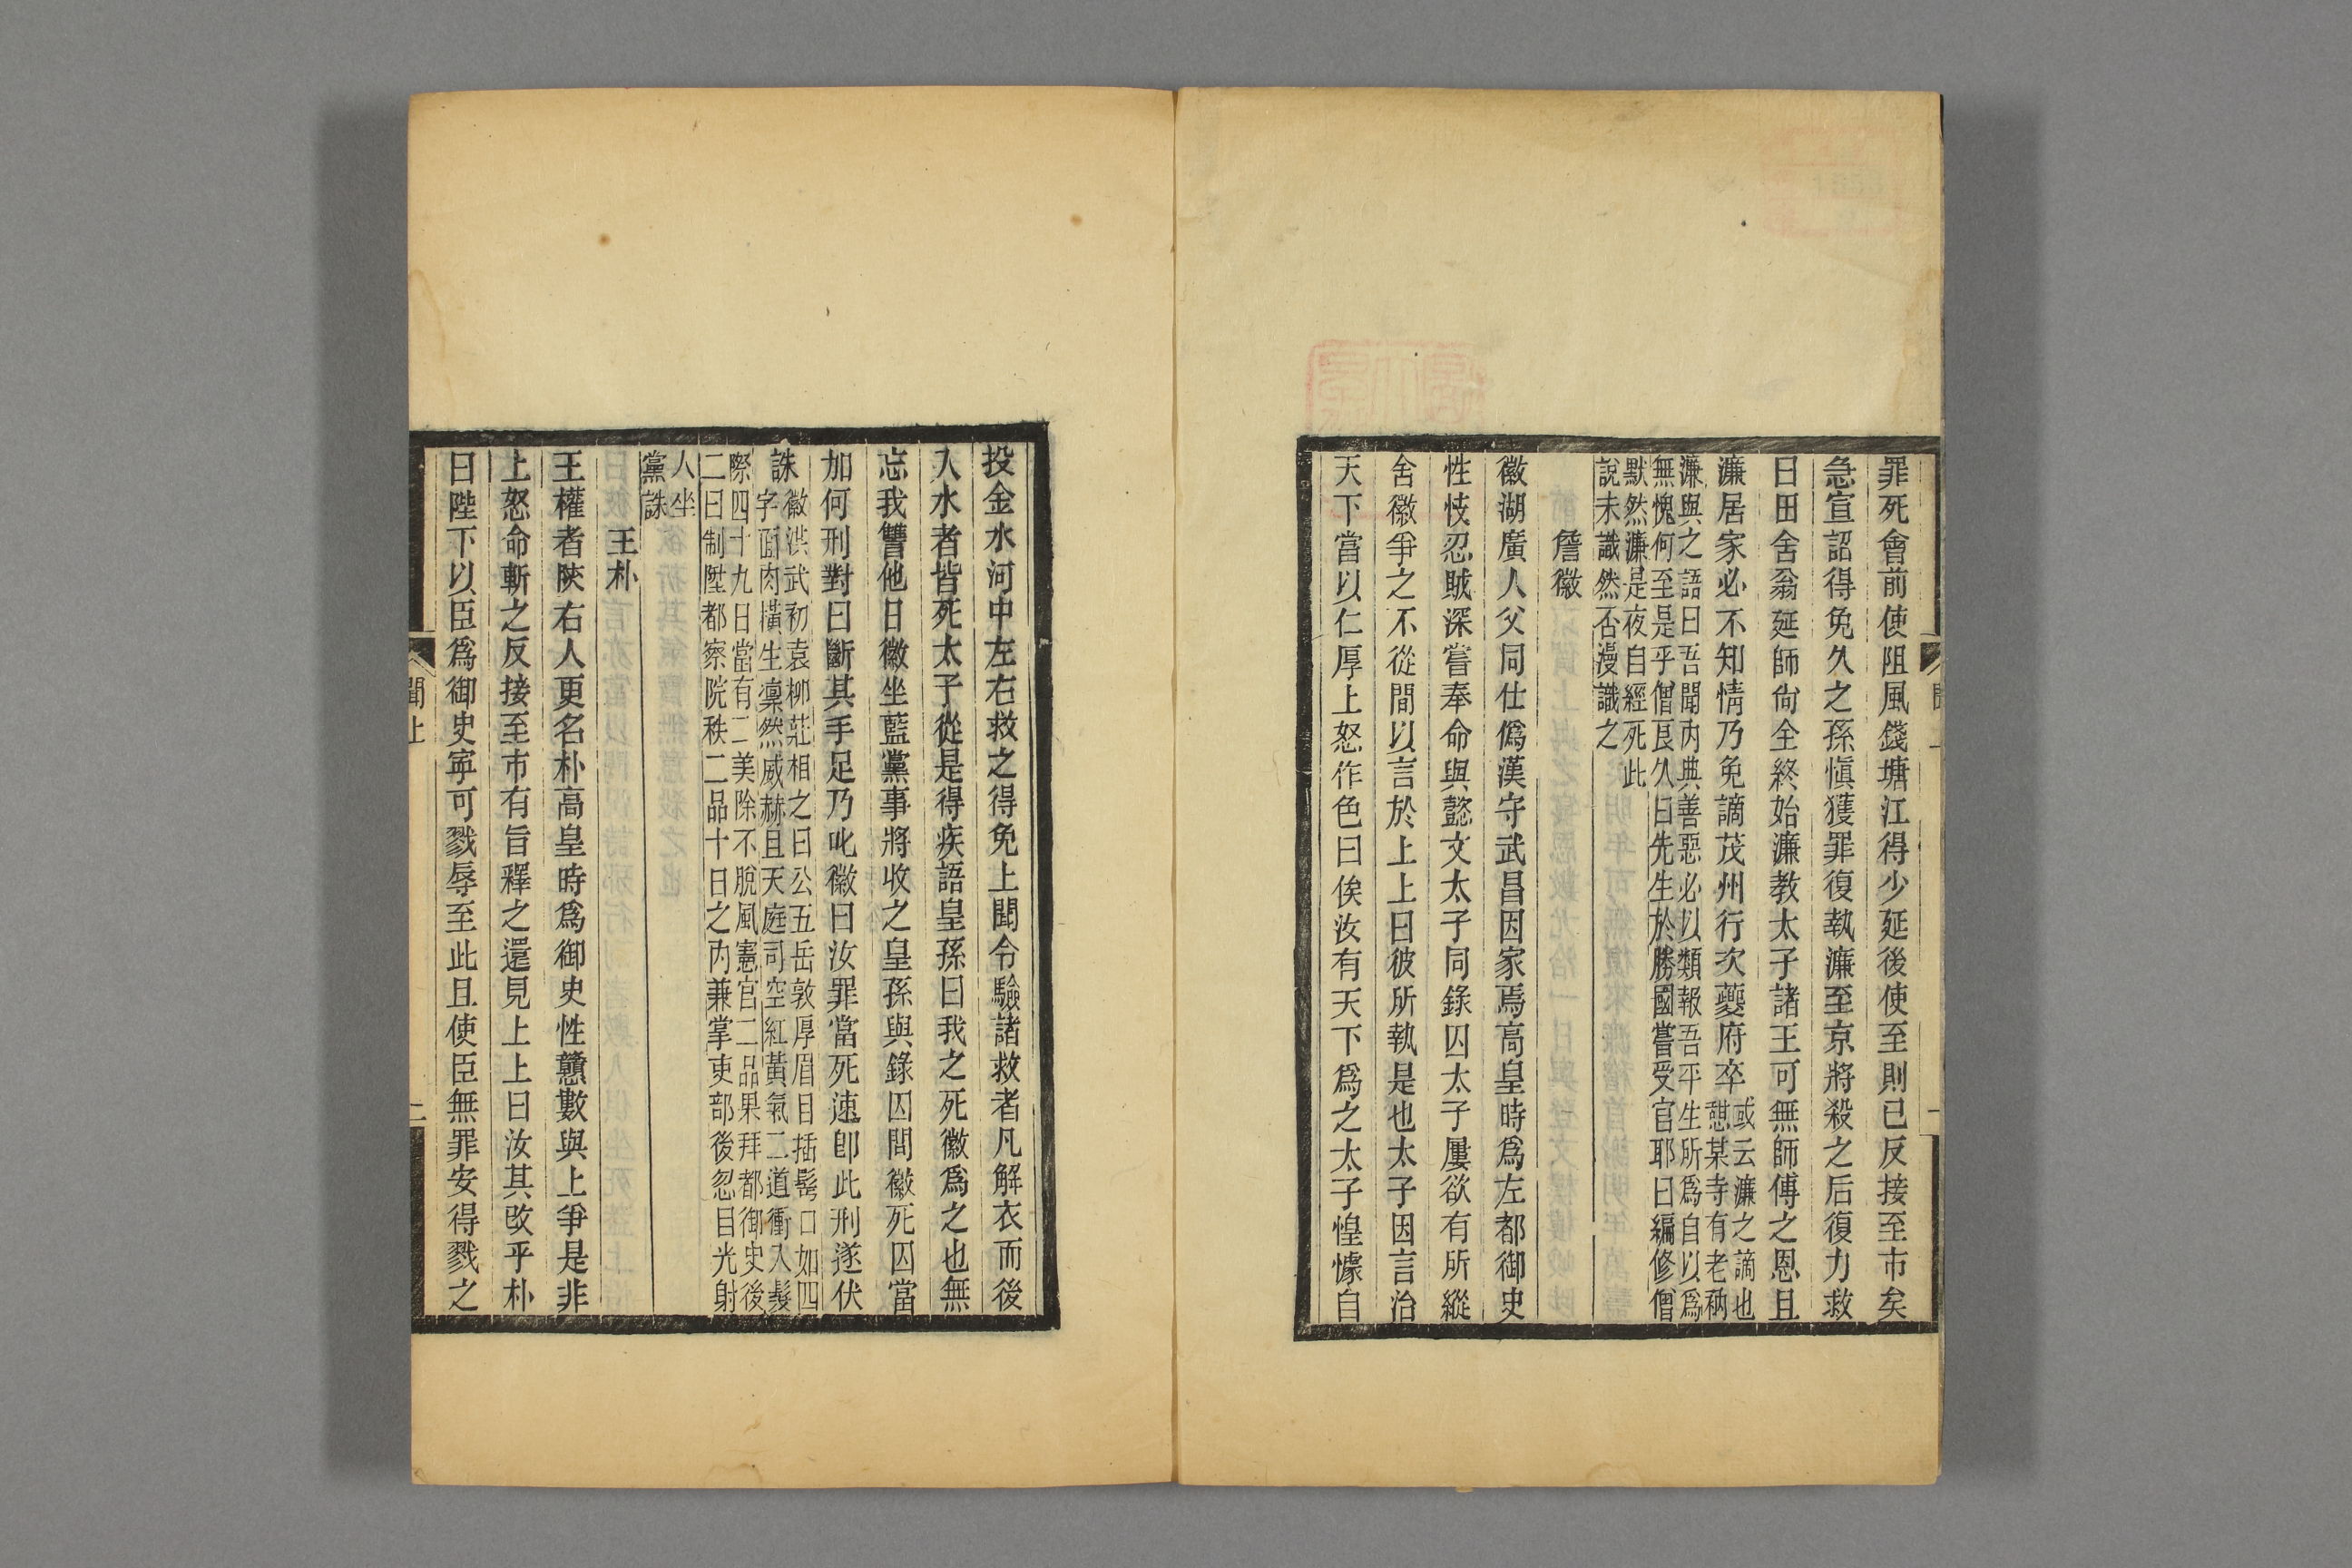 罪死會前使阻風錢塘江得少延後使至則已反接至市矣
急宣詔得免久之孫愼獲罪復執濂至京將殺之后復力救
曰田舍翁延師尙全終始濂教太子諸王可無師傅之恩且
濂居家必不知情乃免謫茂州行次夔府卒
或云濂之謫也
憇某寺有老稱
濂與之語曰吾聞內典善惡必以類報吾平生所爲自以爲
無愧何至是乎僧良久曰先生於勝國嘗受官耶曰編修僧
默然濂是夜自經死此
說未識然否漫識之
詹徽
徽湖廣人父同仕僞漢守武昌因家焉高皇時爲左都御史
性忮忍賊深嘗奉命與懿文太子同錄囚太子屢欲有所縱
舍徽爭之不從間以言於上上曰彼所執是也太子因言治
天下當以仁厚上怒作色曰俟汝有天下爲之太子惶懅自
投金水河中左右救之得免上聞令驗諸救者凡解衣而後
入水者皆死太子從是得疾語皇孫曰我之死徽爲之也無
忘我讐他日徽坐藍黨事將收之皇孫與錄囚間徽死囚當
加何刑對曰斷其手足乃叱徽曰汝罪當死速卽此刑遂伏
誅
徽洪武初袁柳莊相之曰公五岳敦厚眉目插髩口如四
字面肉橫生凜然威赫且天庭司空紅黃氣二道衝入髮
際四十九日當有二美除不脫風憲官二品果拜都御史後
二日制陞都察院秩二品十日之內兼掌吏部後忽目光射
人坐
黨誅
王朴
王權者陝右人更名朴高皇時爲御史性戇數與上爭是非
上怒命斬之反接至市有旨釋之還見上上曰汝其改乎朴
曰陛下以臣爲御史寧可戮辱至此且使臣無罪安得戮之
聞上
二